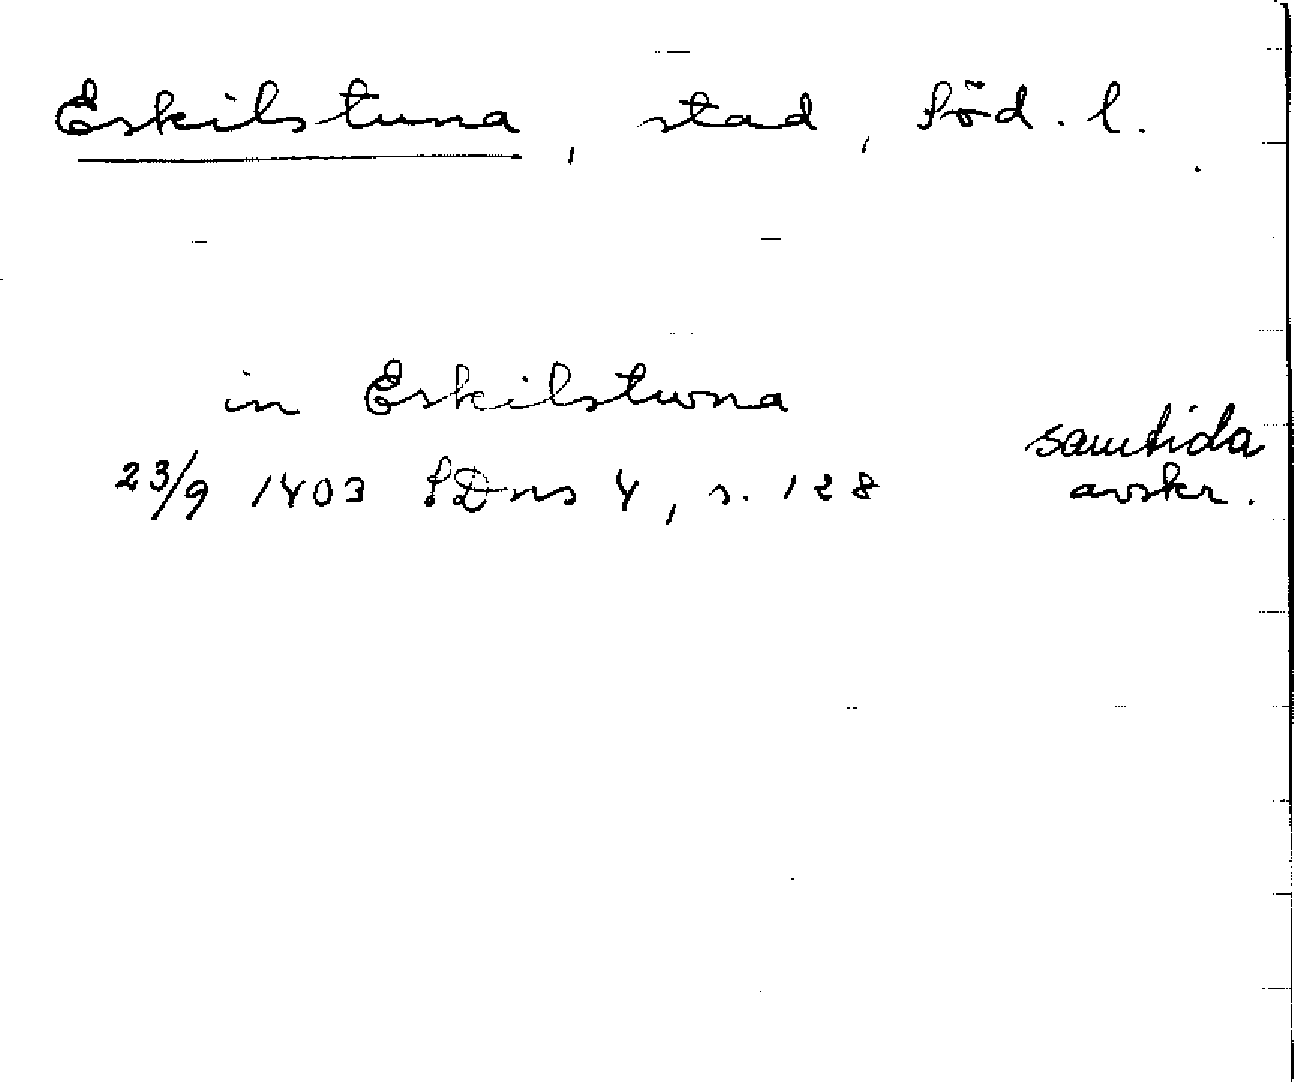 Eskilstuna, stad, Söd. l.
in Eskilstwna
samtida
23/9 1403 SDns 4, s. 128 avskr.